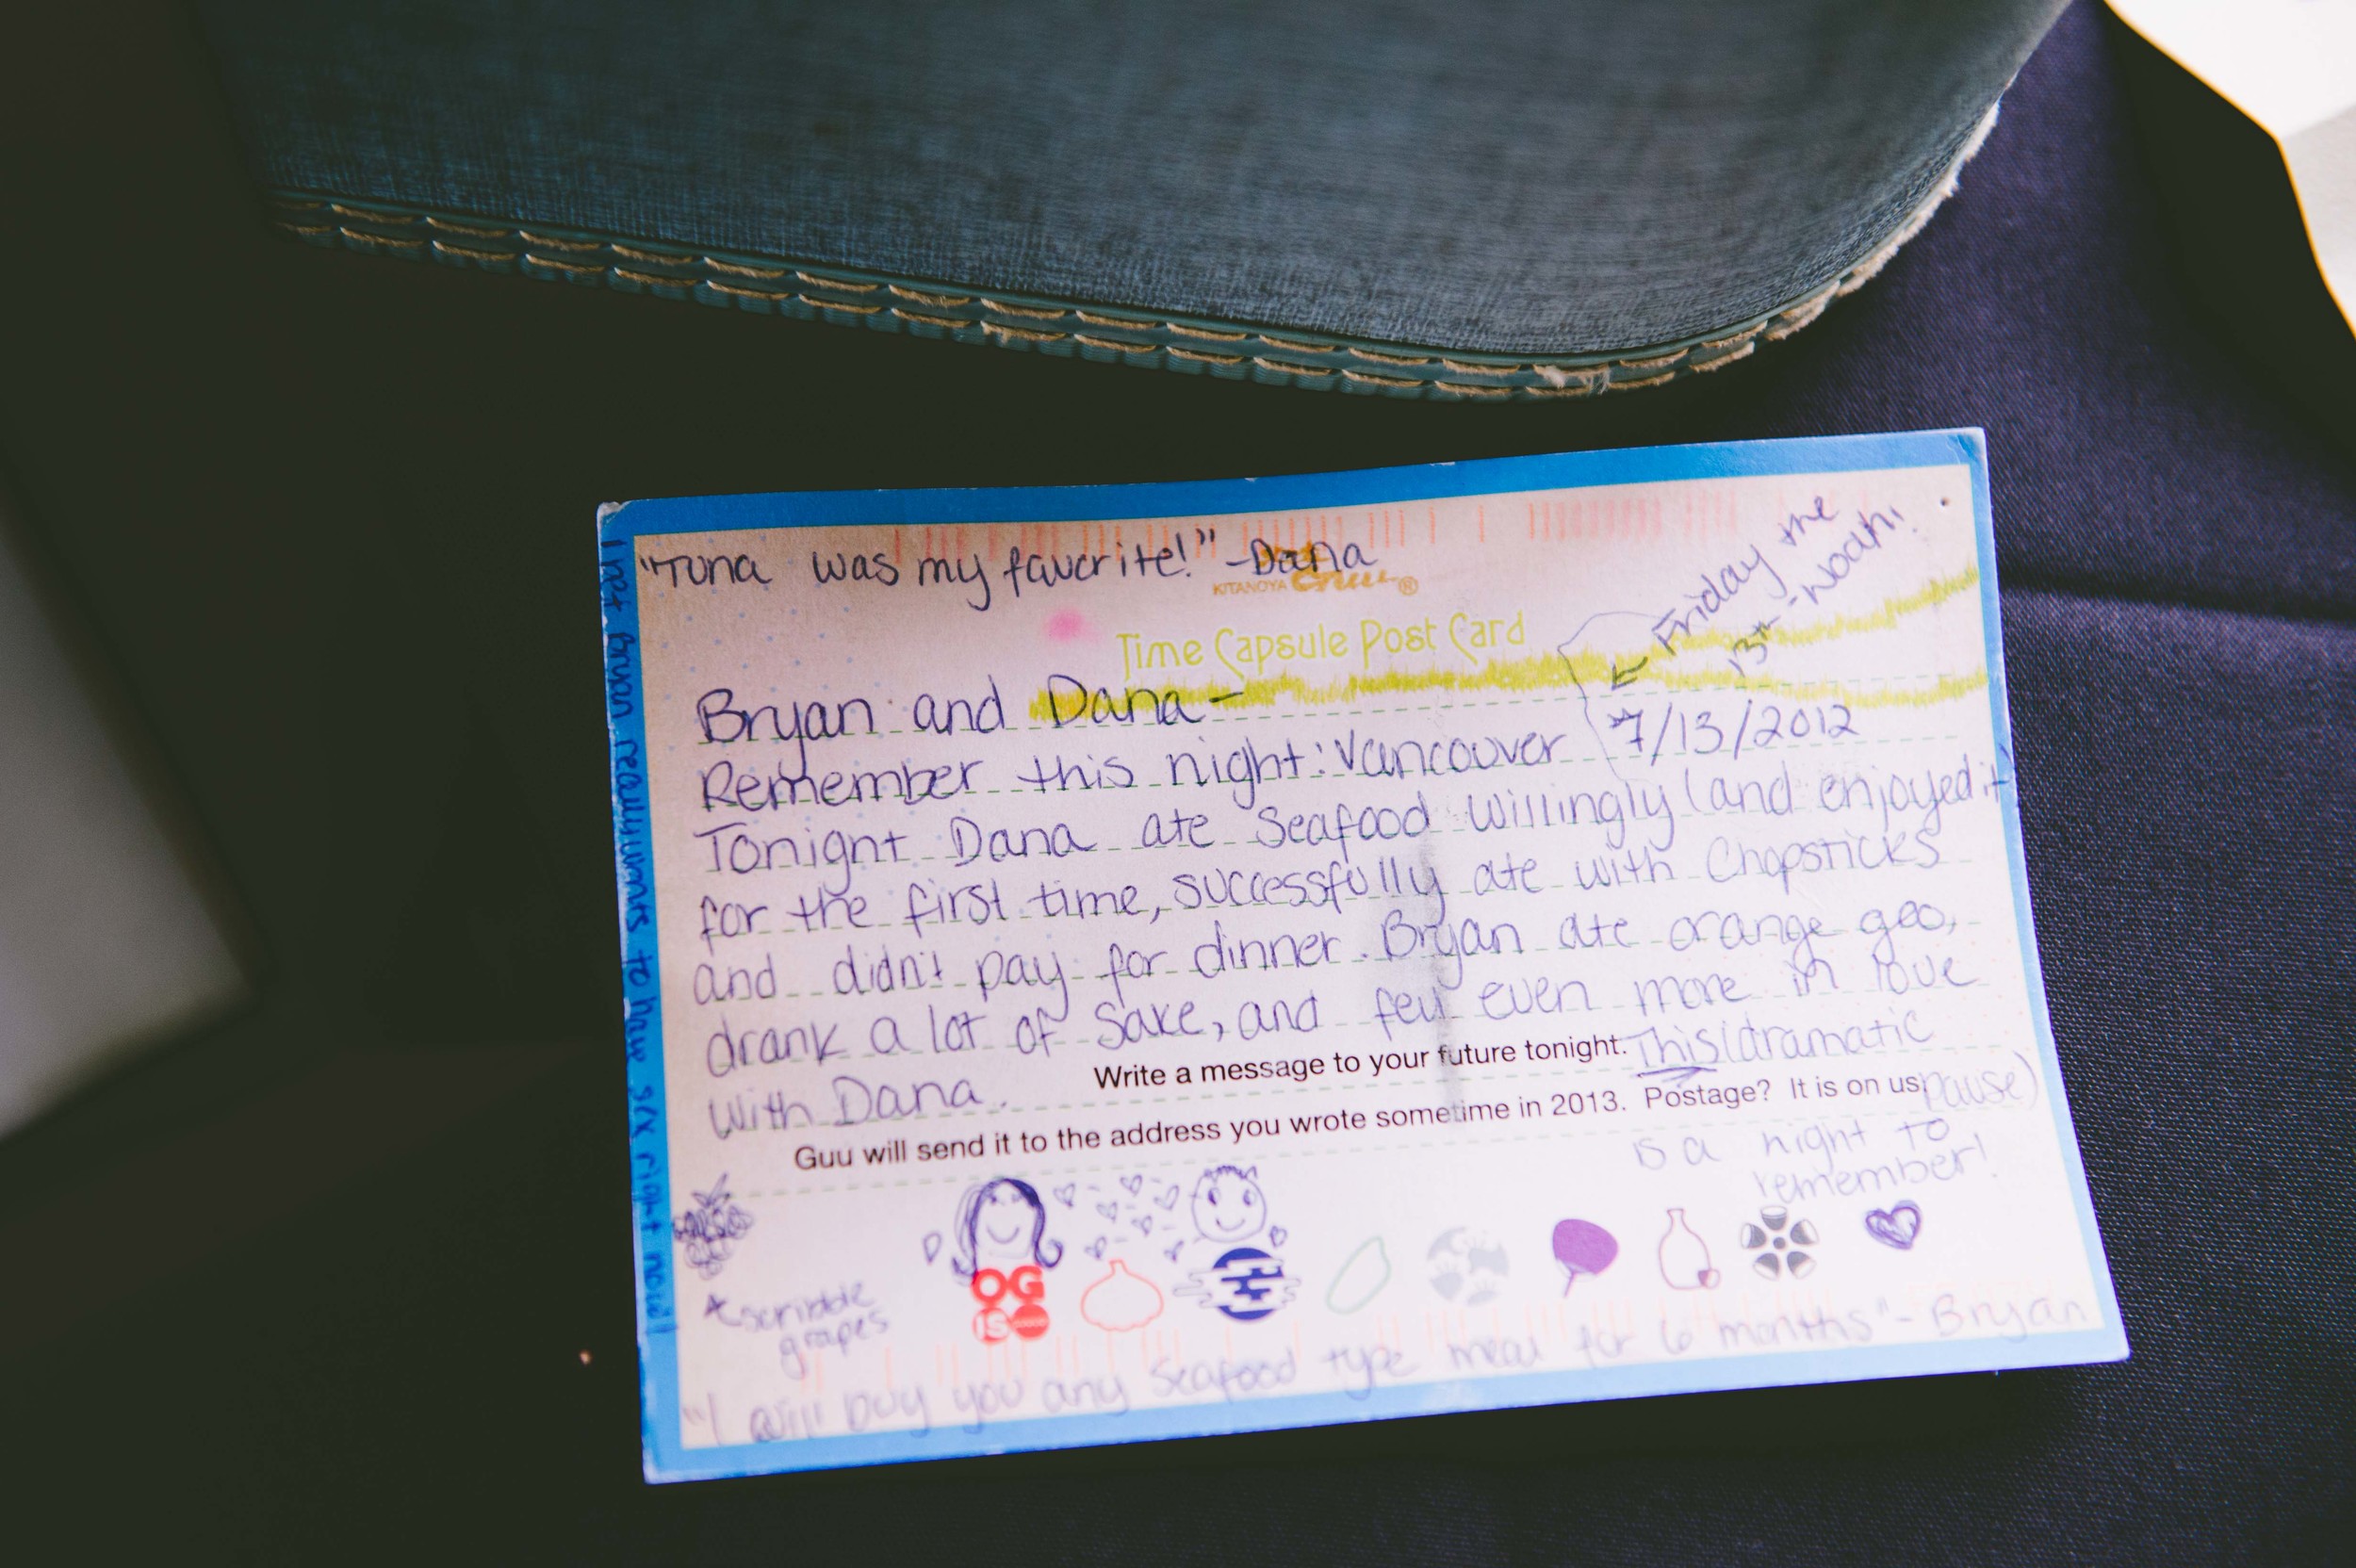 "Tuna was my favorite!" -Dana
KITANOYA Guu ®
Time Capsule Post Card
← Friday the
13th - Woah!
Bryan and Dana-
Remember this night: Vancouver 7/13/2012
Tonight Dana ate Seafood willingly (and enjoyed it)
for the first time, successfully ate with Chopsticks
and didn't pay for dinner. Bryan ate orange geo,
drank a lot of Sake, and fell even more in love
with Dana.
Write a message to your future tonight.
This (dramatic
pause)
is a night to
remember!
Guu will send it to the address you wrote sometime in 2013. Postage? It is on us
OG
IS
scribble
grapes
"I will buy you any Seafood type meal for 6 months" - Bryan
Bryan really wants to have sex right now!